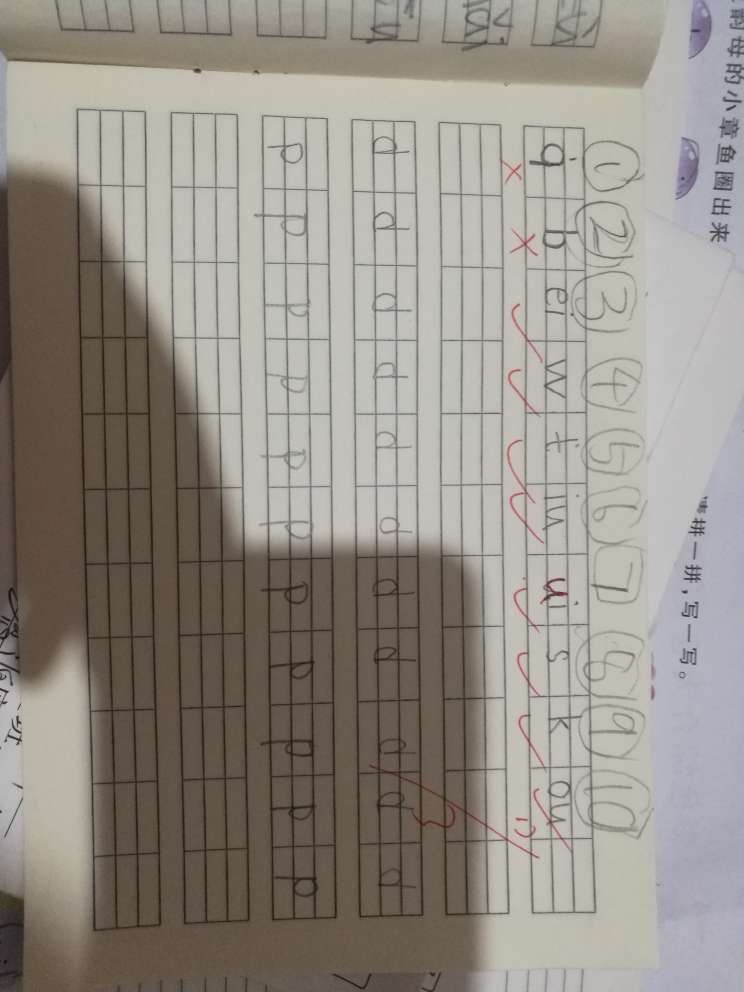 韵母的小章鱼圈出来
拼一拼,写一写。
① ② ③ ④ ⑤ ⑥ ⑦ ⑧ ⑨ ⑩
q b ei w t iu ui s k ou
d d d d d d d d d d d
p p p p p p p p p p p